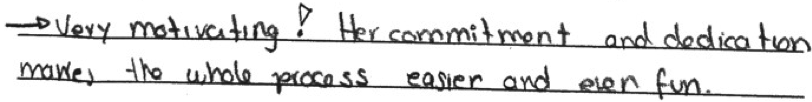 → Very motivating! Her commitment and dedication
makes the whole process easier and even fun.